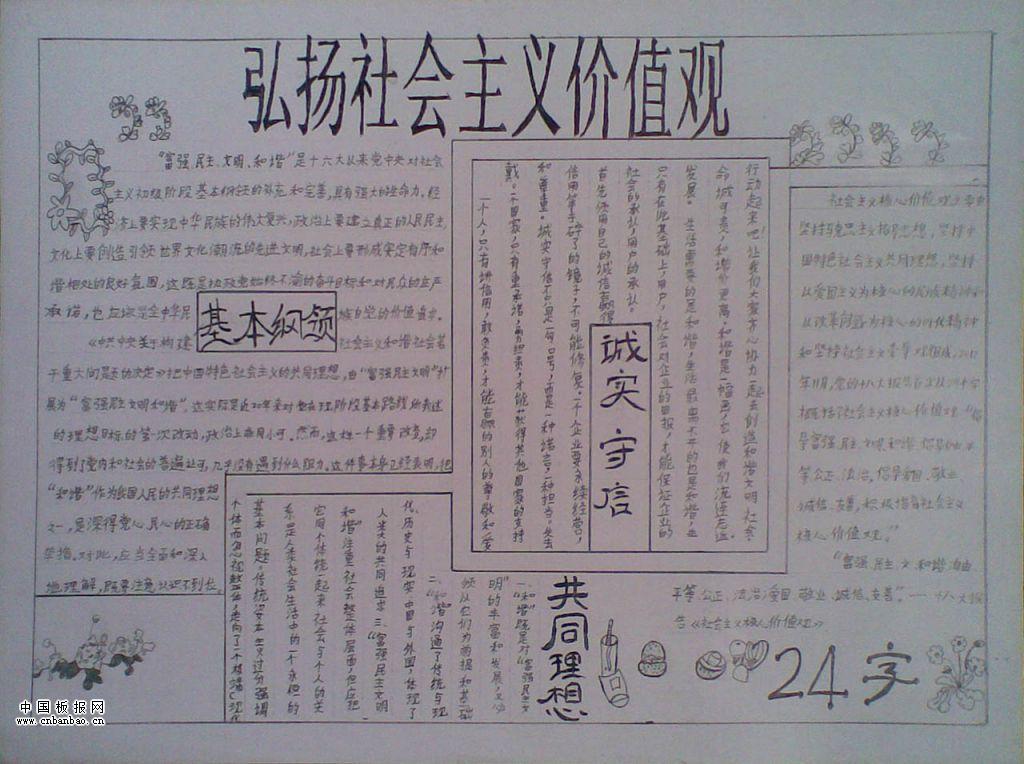 弘扬社会主义价值观
"富强、民主、文明、和谐"是十六大以来党中央对社会
主义初级阶段基本纲领的补充和完善,具有强大的生命力。经
济上要实现中华民族的伟大复兴,政治上要建立真正的人民民主,
文化上要创造引领世界文化潮流的先进文明,社会上要形成安定有序和
谐相处的良好氛围,这既是执政党始终不渝的奋斗目标和对民众的庄严
承诺,也应该是全中华民族自觉的价值追求。
基本纲领
《中共中央关于构建社会主义和谐社会若
干重大问题的决定》把中国特色社会主义的共同理想,由"富强民主文明"扩
展为"富强民主文明和谐"。这实际是近20年来对他在现阶段基本路线所表述
的理想目标的第一次改动,政治上非同小可。然而,这样一个重要改变,却
得到了党内和社会的普遍认可,几乎没有遇到什么阻力。这件事本身已经表明,把
"和谐"作为我国人民的共同理想
之一,是深得党心、民心的正确
举措。对此,应当全面和深入
地理解,既要注意认识不到长
行动起来吧!让我们大家齐心协力一起去创造和谐文明社会。
命诚可贵,和谐价更高。和谐是一幅画,它使我们流连忘返
发展。生活需要的是和谐,生活最离不开的也是和谐,业
只有在此基础上,用户,社会对企业的回报,才能保证企业的
社会的承认,用户的承认。
首先使用自己的诚信赢得
诚实守信
信用等于碎了的镜子,不可能修复。一个企业要永续经营,
和尊重。诚实守信不只是一句口号,更是一种诺言,一种担当。失去
戴。一个国家,只有重承诺,勇担责,才能获得其他国家的支持
一个人,只有讲信用,敢负责,才能赢得别人的尊敬和爱
共同理想
一、"和谐"既是对"富强民主文
明"的丰富和发展,又必
须以它们为前提和基础
二、"和谐"沟通了传统与现
代、历史与现实、中国与外国,体现了
人类的共同追求 三、"富强民主文明
和谐"注重社会整体层面,但应把
它同个体统一起来 社会与个人的关
系是人类社会生活中的一个永恒的
基本问题。传统资本主义过分强调
个体而忽视整体,走向了一个极端(现代
社会主义核心价值观
坚持马克思主义指导思想,坚持中
国特色社会主义共同理想,坚持
以爱国主义为核心的民族精神和
以改革创新为核心的时代精神
和坚持社会主义荣辱观组成。2012
年11月,党的十八大报告首次以24个字
概括社会主义核心价值观"倡
导富强、民主、文明、和谐,倡导自由、平
等、公正、法治,倡导爱国、敬业、
诚信、友善,积极培育社会主义
核心价值观。"
"富强、民主、文、和谐、自由、
平等、公正、法治、爱国、敬业、诚信、友善"。——十八大报
告《社会主义核心价值观》
24字
中国板报网
www.cnbanbao.cn